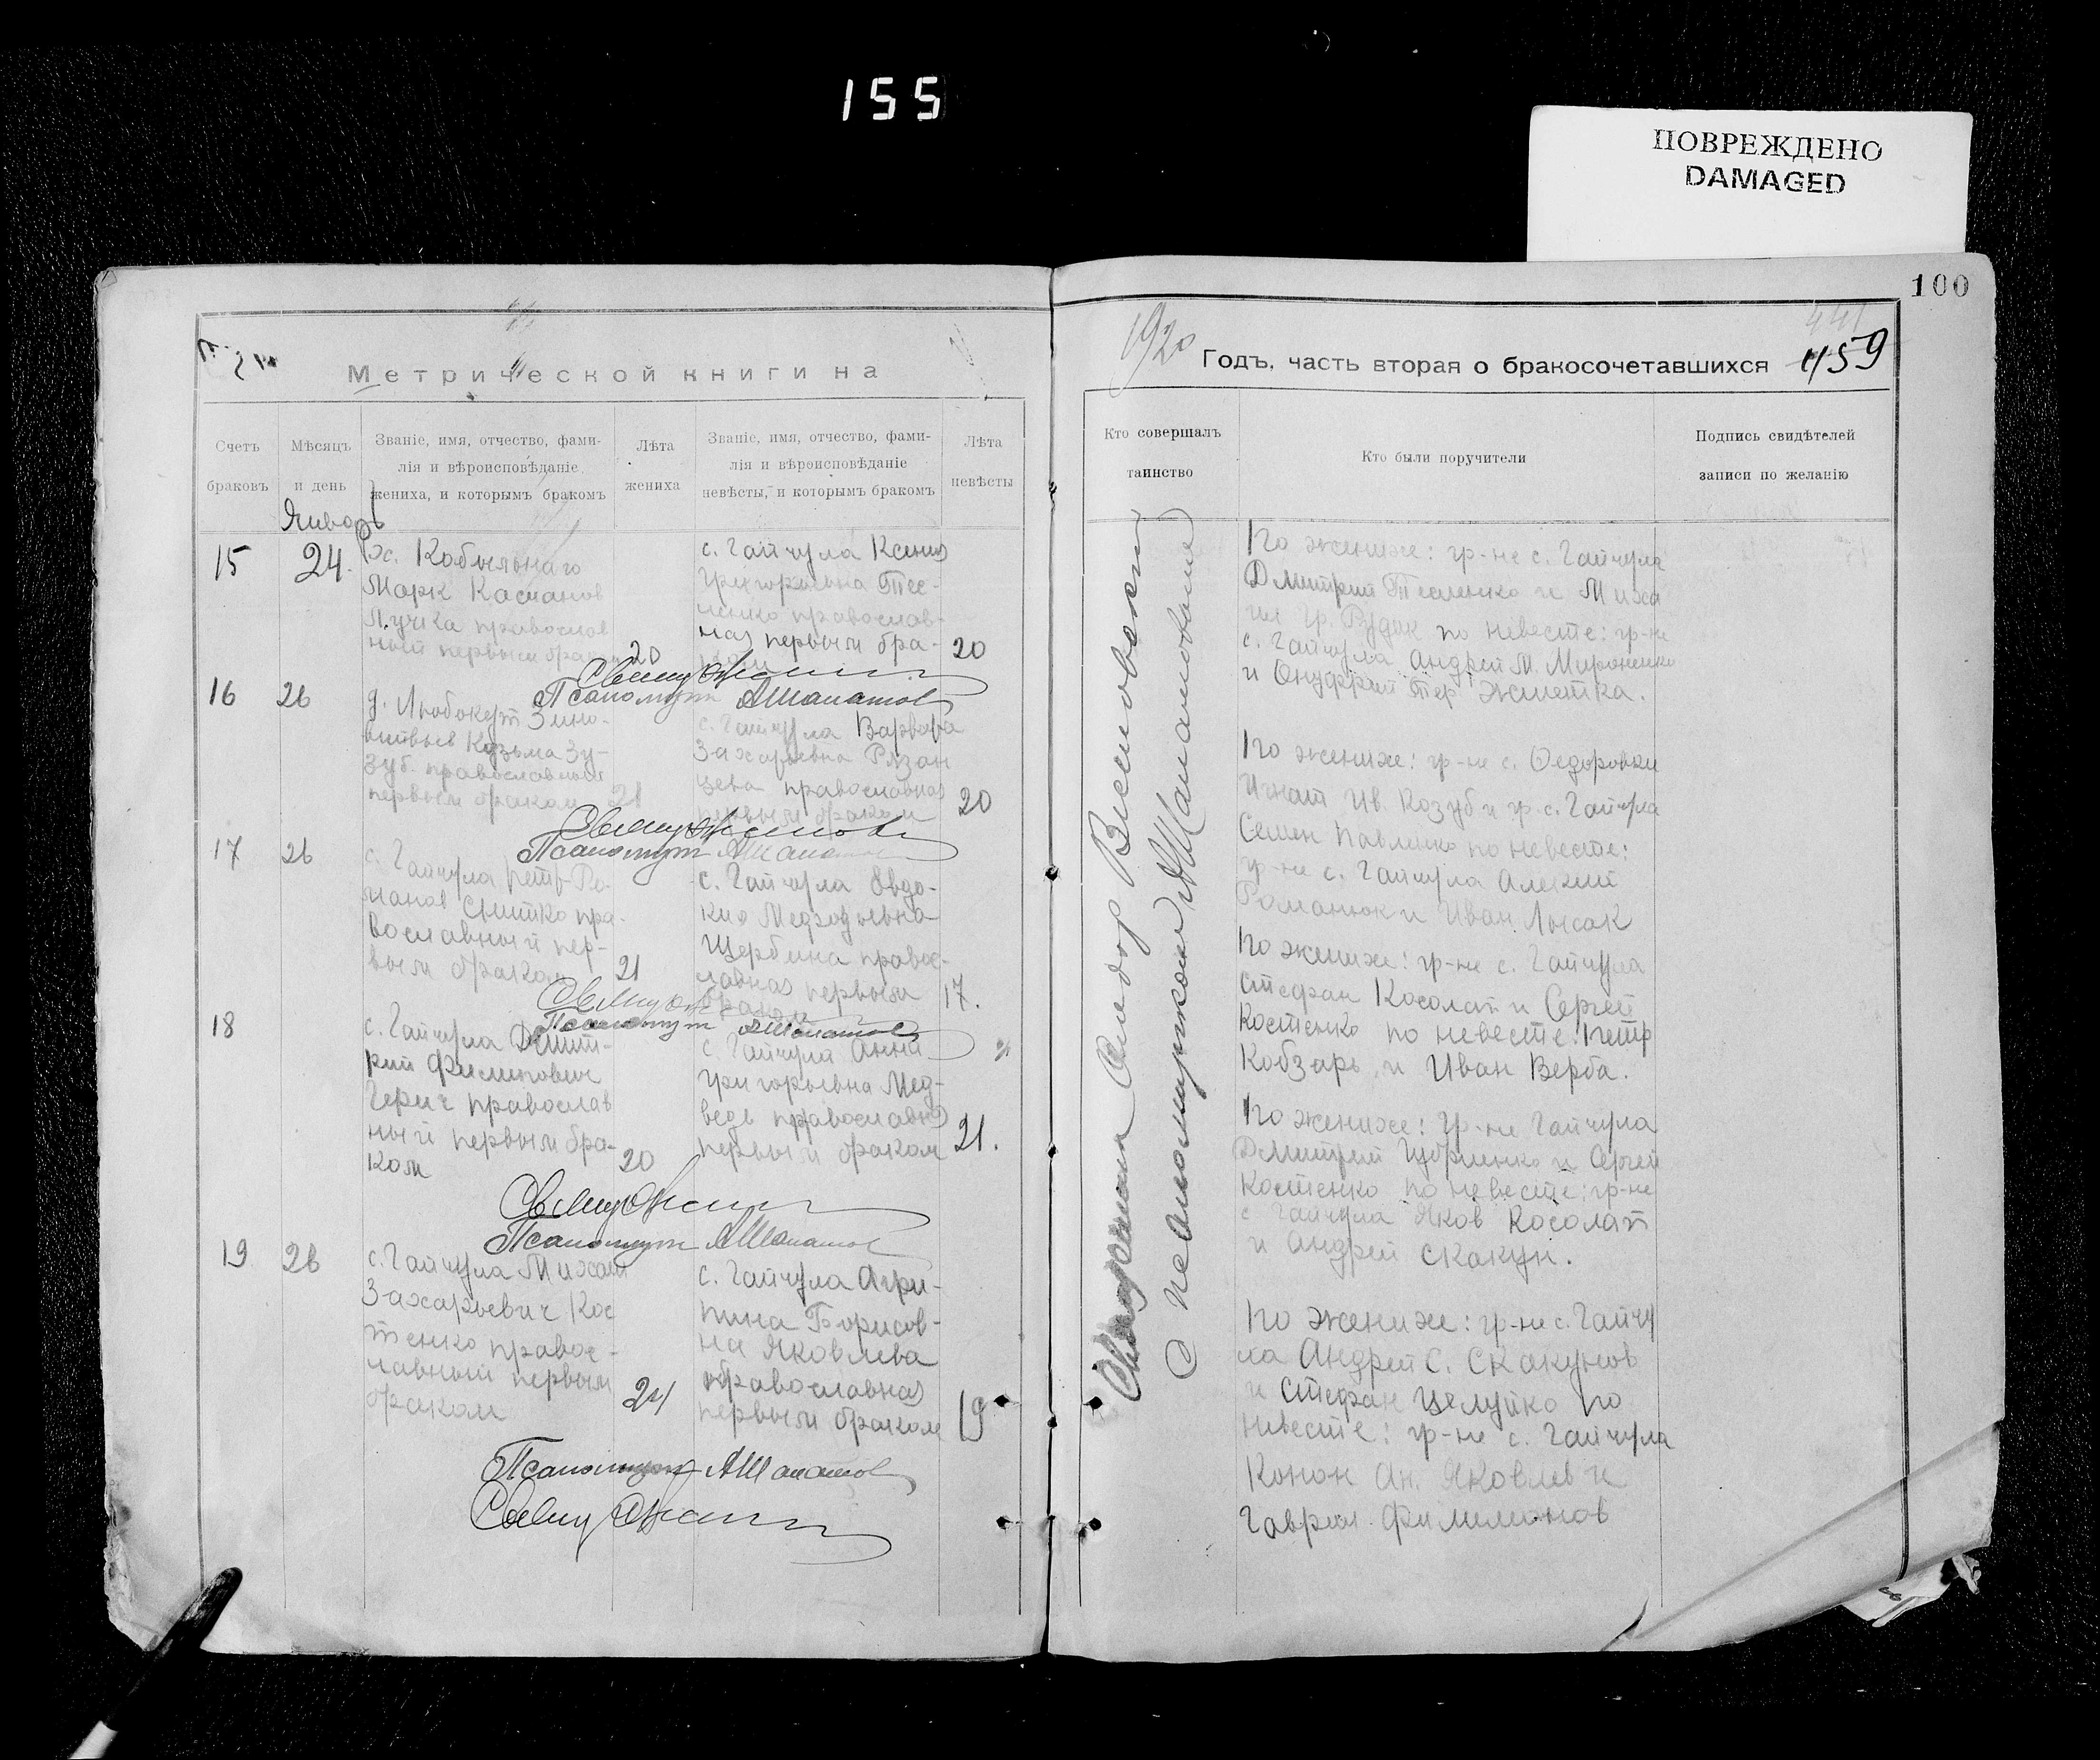 155
ПОВРЕЖДЕНО
DAMAGED
100
Метрической книги на
1920
Годъ, часть вторая о бракосочетавшихся 459
Счетъ браковъ
Мѣсяцъ и день
Званіе, имя, отчество, фами-
лія и вѣроисповѣданіе
жениха, и которымъ бракомъ
Лѣта жениха
Званіе, имя, отчество, фами-
лія и вѣроисповѣданіе
невѣсты, и которымъ бракомъ
Лѣта невѣсты
Кто совершалъ таинство
Кто были поручители
Подпись свидѣтелей
записи по желанію
Январь
15
24.
х. Кобыльнаго
Марк Касианов
Лучка православ
ный первым браком
20
с. Гайчула Ксения
Григорьевна Тес-
ленко православ-
ная первым бра-
ком
20
Псаломщик АШапатов
16
26
д. Любокут Зино-
Козьма Зу-
зуб. православный
первым браком
21
с. Гайчула Варвара
Захарьевна Рязан
цева православная
первым браком
20
Псаломщик АШапатов
17
26
с. Гайчула Петр Ро-
манов Снитко пра-
вославный пер-
вым браком
21
с. Гайчула Евдо-
кия Мефодьевна
Щербина правос-
лавная первым
браком
17.
Псаломщик АШапатов
18
с. Гайчула Дмит-
рий Филипович
Герич православ
ный первым бра-
ком
20
с. Гайчула Анна
Григорьевна Мед-
ведь православная
первым браком
21.
Псаломщик АШапатов
19
26
с. Гайчула Михаил
Захарьевич Кос
тенко правос-
лавный первым
браком
24
с. Гайчула Агри-
пина Борисов-
на Яковлева
православная
первым браком
19
Псаломщик АШапатов
Священник
с Псаломщиком АШапатовым
По женихе: гр-не с. Гайчула
Дмитрий Тесленко и Миха
ил Гр. Рудик по невесте: гр-не
с. Гайчула Андрей М. Мироненко
и Онуфрий Жметка.
По женихе: гр-не с. Федоровки
Игнат Ив. Козуб и гр. с. Гайчула
Семен Павленко по невесте:
гр-не с. Гайчула Алексей
Романюк и Иван Лысак
По женихе: гр-не с. Гайчула
Стефан Косолап и Сергей
Костенко по невесте: Петр
Кобзарь и Иван Верба.
По женихе: гр-не Гайчула
Дмитрий и Сергей
Костенко по невесте: гр-не
с Гайчула Яков Косолап
и Андрей Скакун.
По женихе: гр-не с. Гайчу
ла Андрей С. Скакунов
и Стефан Целуйко по
невесте: гр-не с. Гайчула
Конон Ан. Яковлев и
Гаврил Филимонов